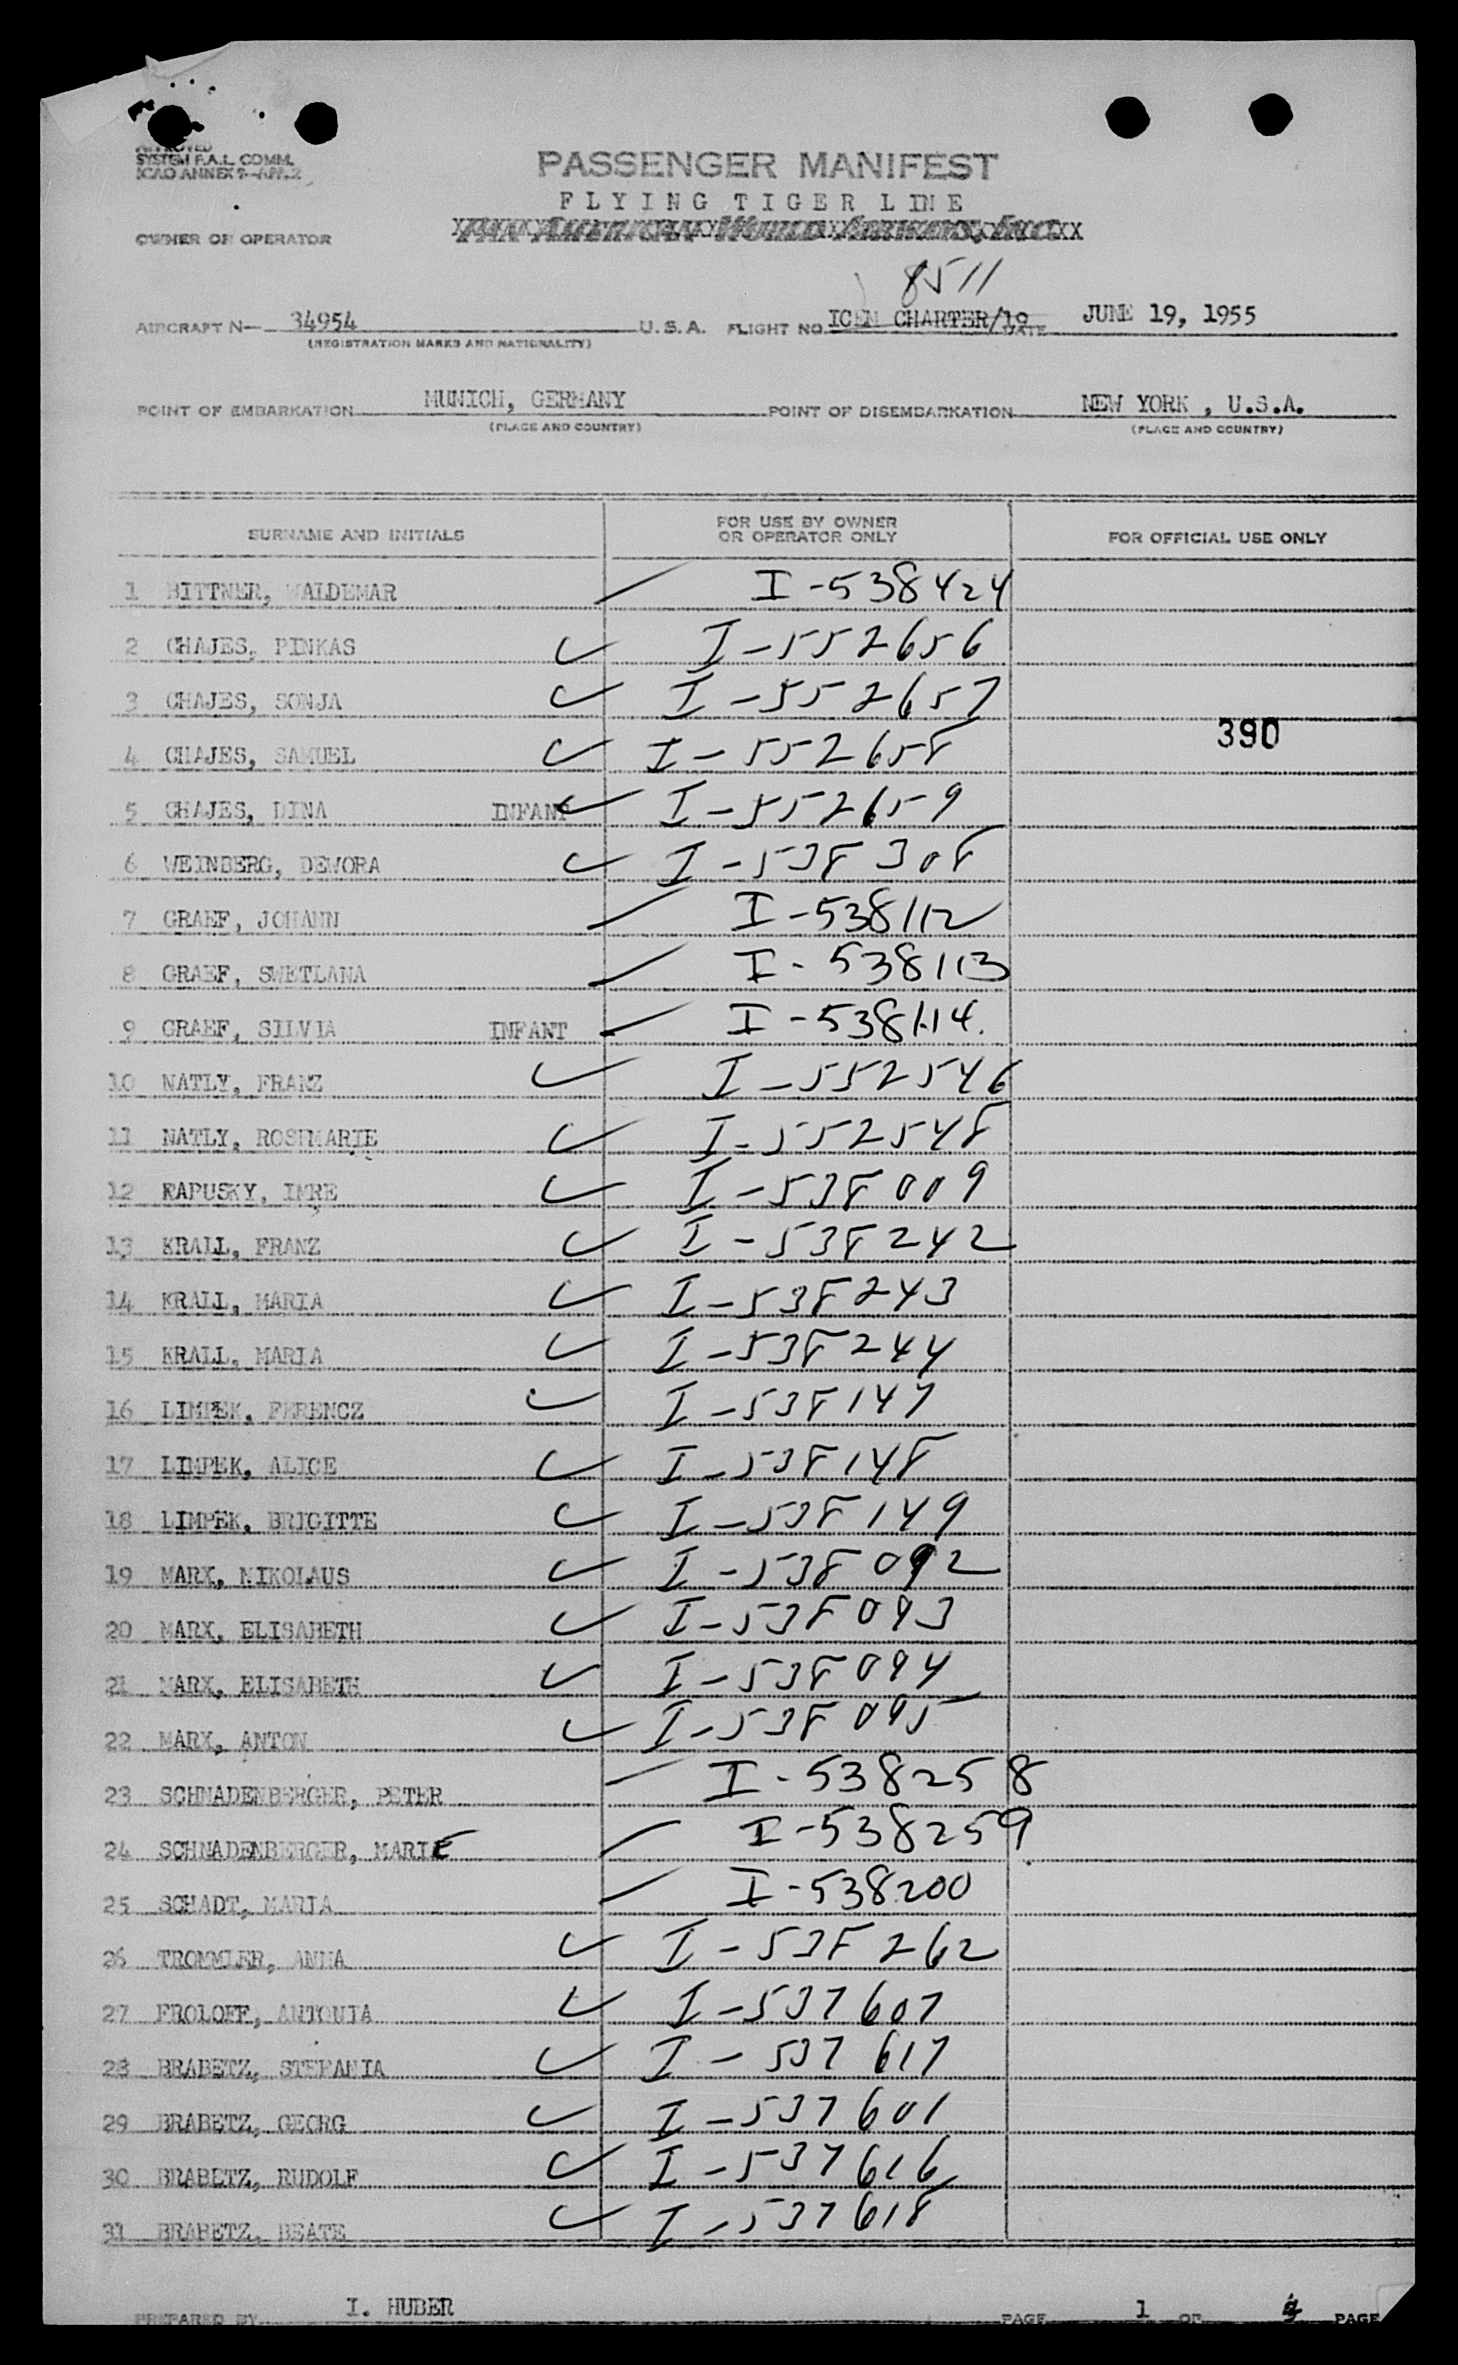 APPROVED
SYSTEM F.A.L. COMM.
ICAO ANNEX 9-APP.2
PASSENGER MANIFEST
FLYING TIGER LINE
PAN AMERICAN WORLD AIRWAYS, INC.
OWNER OR OPERATOR
8511
AIRCRAFT N- 34954 U.S.A. FLIGHT NO. ICEM CHARTER/19 DATE JUNE 19, 1955
(REGISTRATION MARKS AND NATIONALITY)
POINT OF EMBARKATION MUNICH, GERMANY POINT OF DISEMBARKATION NEW YORK , U.S.A.
(PLACE AND COUNTRY) (PLACE AND COUNTRY)
SURNAME AND INITIALS FOR USE BY OWNER OR OPERATOR ONLY FOR OFFICIAL USE ONLY
1 BITTNER, WALDEMAR I-538424
2 CHAJES, PINKAS I-552656
3 CHAJES, SONJA I-552657
390
4 CHAJES, SAMUEL I-552658
5 CHAJES, DINA INFANT I-552659
6 WEINBERG, DEWORA I-538308
7 GRAEF, JOHANN I-538112
8 GRAEF, SWETLANA I-538113
9 GRAEF, SILVIA INFANT I-538114.
10 NATLY, FRANZ I-552546
11 NATLY, ROSEMARIE I-552548
12 RAPUSKY, IMRE I-538009
13 KRALL, FRANZ I-538242
14 KRALL, MARIA I-538243
15 KRALL, MARIA I-538244
16 LIMPEK, FERENCZ I-538147
17 LIMPEK, ALICE I-538148
18 LIMPEK, BRIGITTE I-538149
19 MARX, NIKOLAUS I-538092
20 MARX, ELISABETH I-538093
21 MARX, ELISABETH I-538094
22 MARX, ANTON I-538095
23 SCHNADENBERGER, PETER I-538258
24 SCHNADENBERGER, MARIE I-538259
25 SCHADT, MARIA I-538200
26 TROMMLER, ANNA I-538262
27 FROLOFF, ANTONIA I-537607
28 BRABETZ, STEFANIA I-537617
29 BRABETZ, GEORG I-537601
30 BRABETZ, RUDOLF I-537616
31 BRABETZ, BEATE I-537618
PREPARED BY I. HUBER PAGE 1 OF PAGE